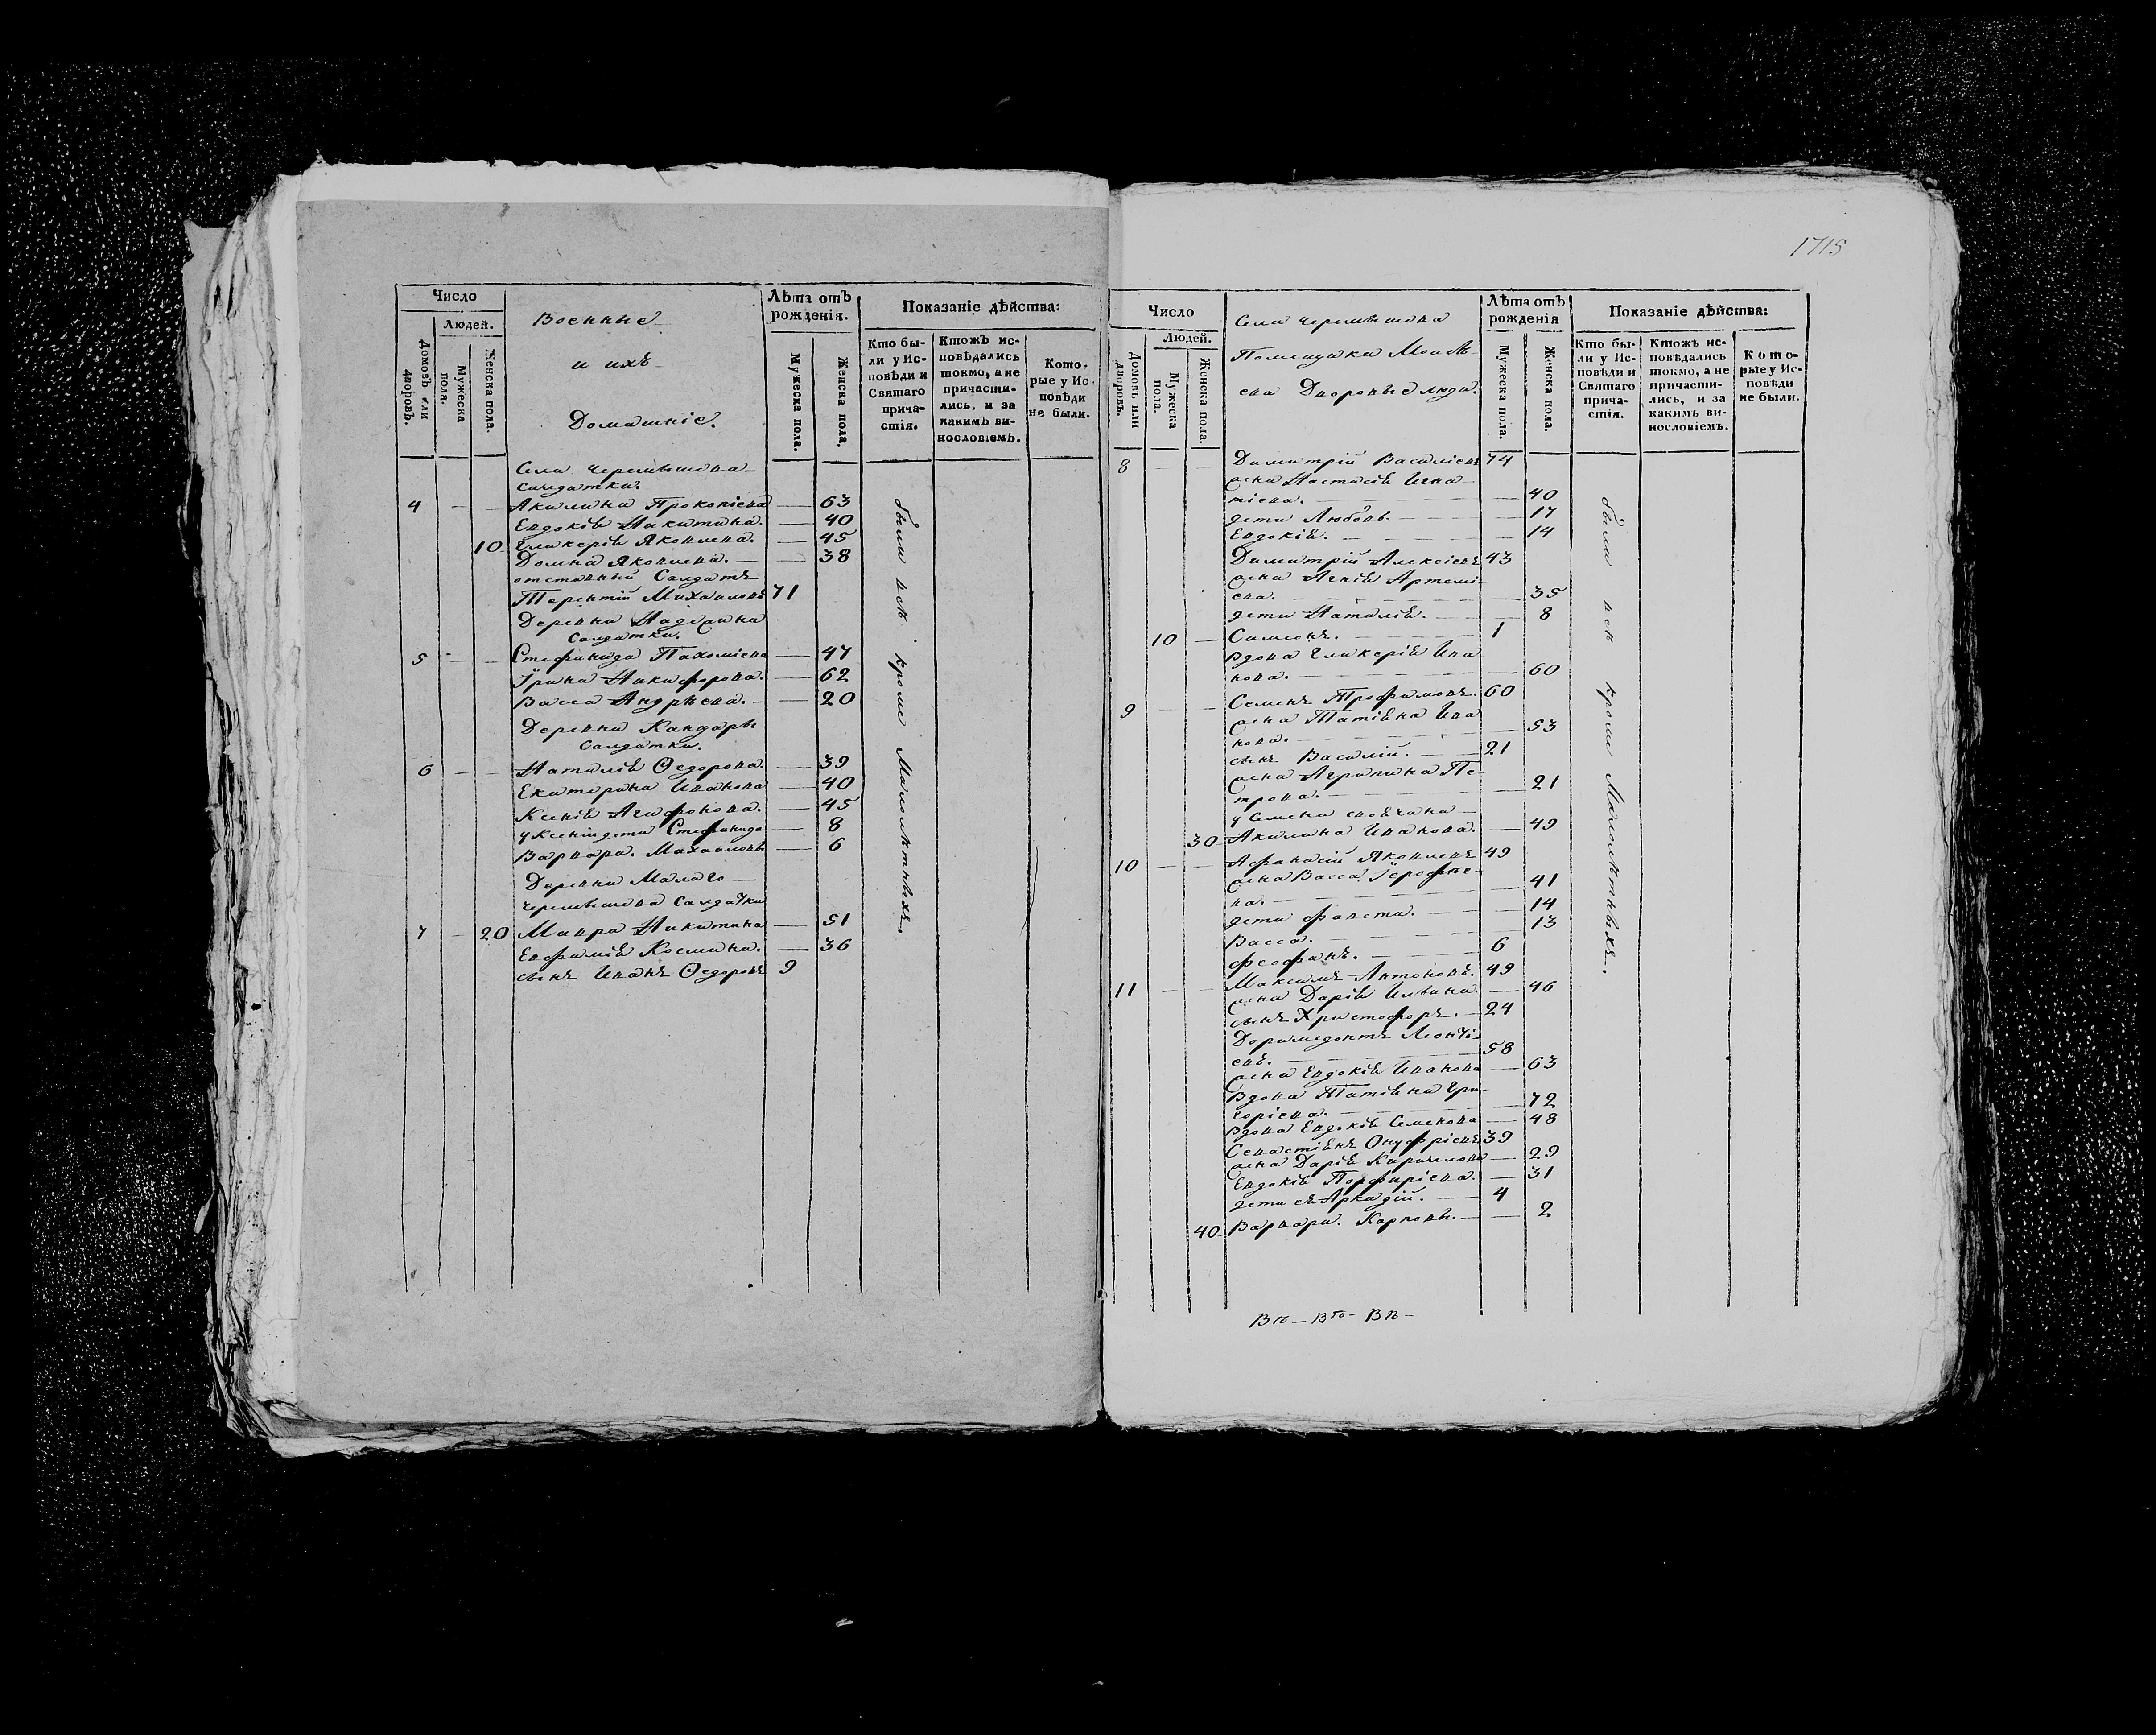 Число
Людей.
Домовъ или дворовъ.
Мужеска пола.
Женска пола.
Военные
и ихъ
Домашніе.
Лѣта отъ рожденія.
Мужеска пола.
Женска пола.
Показаніе дѣйства:
Кто бы-
ли у Ис-
повѣди и
Святаго
прича-
стія.
Ктожъ ис-
повѣдались
токмо, а не
причасти-
лись, и за
какимъ ви-
нословіемъ.
Кото-
рые у Ис-
повѣди
не были.
Села Черемышева
Салдатки.
4 — — Акилина Прокопіева — 63
Евдокія Никитина. — 40
10 Гликерія Яковлева. — 45
Домна Яковлева. — 38
отставный Салдатъ
Терентій Михаиловъ 71
Деревни Надеина
Салдатки.
5 — — Стефанида Пахоміева — 47
Ірина Никифорова. — 62
Васса Андрѣева. — 20
Деревни Кандары
Салдатки.
6 — — Наталія Ѳедорова. — 39
Екатерина Иванова — 40
Ксенія Агафонова. — 45
у Ксеніи дети Стефанида — 8
Варвара. Михаиловы — 6
Деревни Малаго
Черемышева Салдатки
7 — 20 Мавра Никитина — 51
Евфимія Космина. — 36
сынъ Иванъ Ѳедоровъ 9
были всѣ кроме Малолѣтныхъ.
1715
Число
Людей.
Домовъ или дворовъ.
Мужеска пола.
Женска пола.
Села Черемышева
Помещика Моисѣ-
ева Дворовые люди.
Лѣта отъ рожденія
Мужеска пола.
Женска пола.
Показаніе дѣйства:
Кто бы-
ли у Ис-
повѣди и
Святаго
прича-
стія.
Ктожъ ис-
повѣдались
токмо, а не
причасти-
лись, и за
какимъ ви-
нословіемъ.
Кото-
рые у Ис-
повѣди
не были.
8 — — Димитрій Василіевъ 74
жена Настасія Игна-
тіева. — 40
дети Любовь. — 17
Евдокія. — 14
Димитрій Алексіевъ 43
жена Агнія Артемі-
ева. — 35
дети Наталія. — 8
10 — Симеонъ. — 1
вдова Гликерія Ива
нова. — 60
9 — — Семенъ Трофимовъ. 60
жена Татіяна Ива
нова. — 53
сынъ Василій. — 21
жена Агрипина Пе-
трова. — 21
у Семена своячина —
30 Акилина Иванова. — 49
10 — — Афанасій Яковлевъ 49
жена Васса Іерофѣе-
ва. — 41
дети фавста. — 14
Васса. — 13
феофанъ. — 6
11 — — Максимъ Антоновъ. 49
жена Дарія Ильина. — 46
сынъ Христофоръ. — 24
Доримедонтъ Леонті-
евъ. — 58
жена Евдокія Иванова — 63
Вдова Татіяна Гри-
горіева. — 72
Вдова Евдокія Семенова — 48
Севастіянъ Онуфріевъ 39
жена Дарія Кирилова — 29
Евдокія Порфиріева. — 31
дети ея Аркадій. — 4
40 Варвара. Карповы. — 2
были всѣ кроме Малолѣтныхъ.